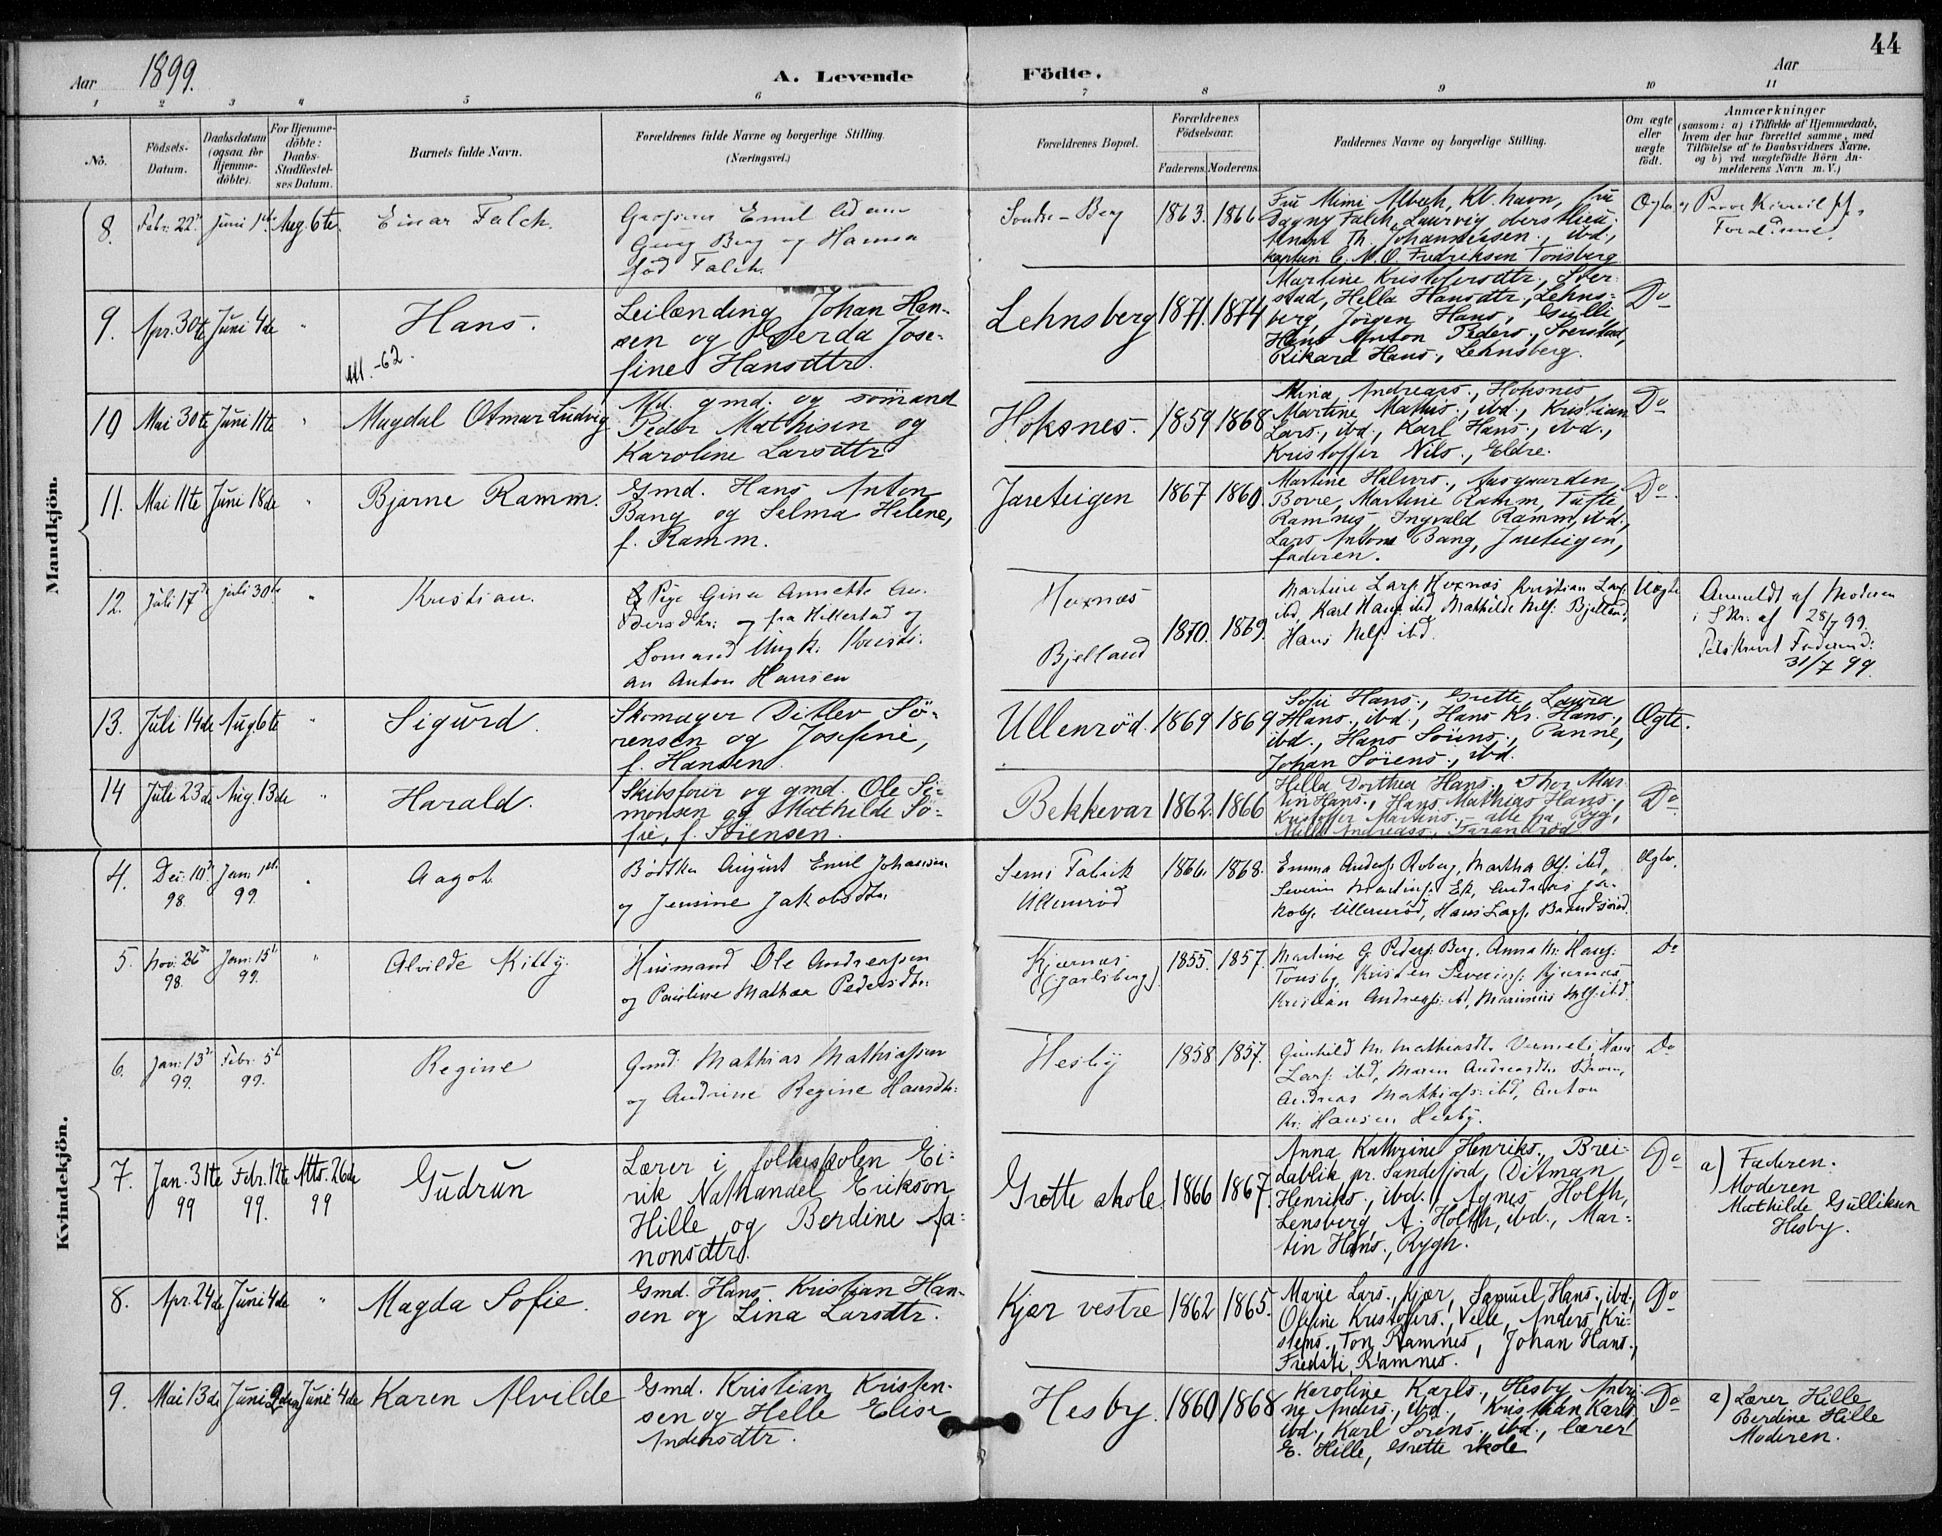 44
Aar 1899. A. Levende Födte. Aar
1 2 3 4 5 6 7 8 9 10 11
No.
Födsels-
Datum.
Daabsdatum
(ogsaa for
Hjemme-
döbte).
For Hjemme-
döbte:
Daabs-
Stadfæstel-
ses Datum.
Barnets fulde Navn.
Forældrenes fulde Navne og borgerlige Stilling.
(Næringsvei.)
Forældrenes Bopæl.
Forældrenes
Födselsaar.
Faderens. Moderens.
Faddernes Navne og borgerlige Stilling.
Om ægte
eller
uægte
födt.
Anmærkninger
(saasom: a) i Tilfælde af Hjemmedaab,
hvem der har forrettet samme, med
Tilföielse af to Daabsvidners Navne,
og b) ved uægtefödte Börn An-
melderens Navn m. V.)
Mandkjön.
8. Febr. 22 Juni 1 Aug. 6te Einar Falch.
Emil
Georg Berg og Hanna
föd Falch.
Söndre-Berg 1863. 1866
Fru Mimi havn, fru
Dagny Falch, Laurvig,
Th. Johannesen, ibd.,
C. M. O. Fredriksen Tönsberg
Ægte
9. Apr. 30te Juni 4de " Hans.
-62.
Leilænding Johan Han-
sen og Gerda Jose-
fine Hansdtr.
Lehnsberg 1871. 1874
Martine Kristofersdtr., Sver-
stad, Hella Hansdtr., Lehns-
berg, Jörgen Hans.,
Hans Anton Peders., Sverstad,
Rikard Hans., Lehnsberg.
Do
10 Mai 30te Juni 11te " Magdal Otmar Ludvig
gmd. og sömand
Peder Mathisen og
Karoline Larsdtr.
Hoksnes. 1859 1868
Mina Andreass., Hoksnes
Martine Mathis., ibd., Kristian
Lars., ibd., Karl Hans., ibd.,
Kristoffer Nils., Eldre.
Do
11. Mai 11te Juni 18de " Bjarne Ramm.
Gmd. Hans Anton
Bang og Selma Helene,
f. Ramm.
Jareteigen 1867 1860.
Martine Halvors., Aasgaarden,
Borre, Martine Ramm, Tufte,
Ramnes, Ingvald Ramm, ibd.,
Lars Antone Bang, Jareteigen,
faderen.
Do
12. Juli 17 Juli 30te " Kristian.
Pige Gina Annette An-
dersdtr: og fra Hillestad og
Sömand Ungk. Kristi-
an Anton Hansen
Hoxnæs
Bjelland
1870. 1869.
Martine Larss. Hoxnæs, Kristian Larss.
ibd, Karl Hanss. ibd, Mathilde Nilss. Bjelland,
Hans Nilss. ibd.
Uægte
Anmeldt af Moderen
i Skr. af 28/7 99.
31/7 99.
13. Juli 14de Aug 6te " Sigurd.
Skomager Ditlev Sö-
rensen og Josefine,
f. Hansen.
Ullenröd. 1869 1869
Sofie Hans., Grette, Laura
Hans., ibd., Hans Kr. Hans.,
ibd., Hans Sörens., Panne,
Johan Sörens., ibd.
Ægte.
14 Juli 23de Aug. 13de " Harald.
Skibsförer og gmd. Ole Si-
monsen og Mathilde So-
fie, f. Sörensen.
Bekkevar 1862. 1866
Hella Dorthea Hans., Thor Mar-
tin Hans., Hans Mathias Hans.,
Kristoffer Martins., - alle fra Ryg,
Mille Andreass., Farandröd
Do
Kvindekjön.
4. Dec. 10 98. Jan. 1ste 99. " Aagot.
Bödtker August Emil Johansen
og Jensine Jakobsdtr.
Sems Fabrik
Ullenröd
1866. 1868.
Emma Anderss. Roberg, Martha Ols. ibd,
Severin Martins. Ek, Andreas Ja-
kobs. Ullenröd, Hans Larss.
Ægte.
5. Nov. 26 98. Jan. 15 99. " Alvilde Kitty.
Husmand Ole Andreassen
og Pauline Mathea Pedersdtr.
Kjærnæs
(Jarlsberg)
1855. 1857.
Martine G. Peders. Berg, Anna M. Hanss.
Tönsbg, Kristen Severins. Kjærnæs
Kristian Andreass. ibd, Marinius Nils. ibd.
Do
6. Jan. 13 99. Febr. 5 99. Regine
Gmd. Mathias Mathiassen
og Andrine Regine Hansdtr.
Hesby 1858 1857.
Gunhild M. Mathiasdtr. Hans
Larss. ibd, Maren Andreasdtr.
Andreas Mathiass. ibd, Anton
Kr. Hansen Hesby.
Do
7. Jan. 31te 99 Febr. 12te 99. Mts. 26de 99 Gudrun
Lærer i folkeskolen Ei-
rik Nathanael Erikson
Hille og Berdine Aa-
nonsdtr.
Grette skole 1866 1867.
Anna Kathrine Henriks., Brei-
dablik pr. Sandefjord, Ditman
Henriks., ibd., Agnes Holth,
Lensberg, A. Holth, ibd., Mar-
tin Hans., Rygh.
Do
a) Faderen.
Moderen
Mathilde Gulliksen
Hesby.
8. Apr. 24de Juni 4de " Magda Sofie.
Gmd. Hans Kristian Han-
sen og Lina Larsdtr.
Kjær vestre 1862 1865.
Marie Lars., Kjær, Samuel Hans., ibd.,
Olefine Kristoffers., Velle, Anders Kri-
stens., Ton, Ramnes, Johan Hans.,
Fredsti, Ramnes.
Do
9. Mai 13de Juni 2den Juni 4de Karen Alvilde
Gmd. Kristian Kristen-
sen og Helle Elise
Andersdtr.
Hesby. 1860 1868
Karoline Karls., Hesby, Andri-
ne Anders., ibd., Kristian Karls.
ibd., Karl Sörens., ibd., lærer
E. Hille, Grette skole
Do
a) Lærer Hille
Berdine Hille
Moderen.